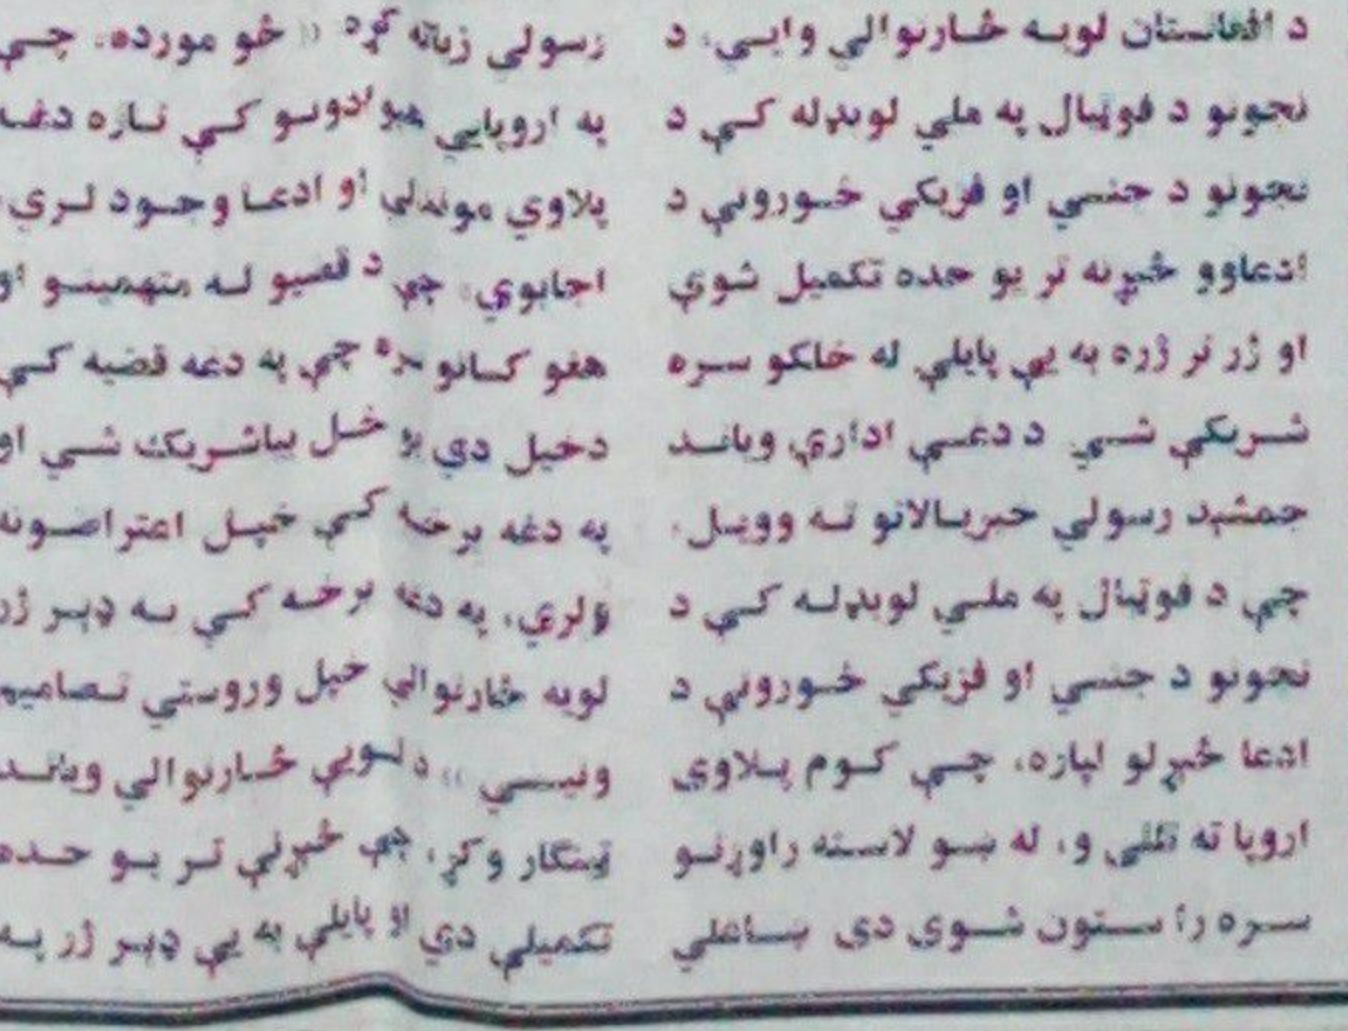 د افغانستان لويه څارنوالي وايي، د
نجونو د فوټبال په ملي لوبډله کې د
نجونو د جنسي او فزيکي ځورونې د
ادعاوو څېړنه تر يو حده تکميل شوې
او ژر تر ژره به يې پايلې له خلکو سره
شريکې شي. د دغې ادارې وياند
جمشېد رسولي خبريالانو ته وويل،
چې د فوټبال په ملي لوبډله کې د
نجونو د جنسي او فزيکي ځورونې د
ادعا څېړلو لپاره، چې کوم پلاوی
اروپا ته تللی و، له ښو لاسته راوړنو
سره راستون شوی دی ښاغلي
رسولي زياته کړه « څو مورده، چې
په اروپايي هېوادونو کې تازه دغه
پلاوي موندلي او ادعا وجود لري،
اجابوي، چې د قضيو له متهمينو او
هغو کسانو سره چې په دغه قضيه کې
دخيل دي يو ځل بيا شريک شي او
په دغه برخه کې خپل اعتراضونه
ولري، په دغه برخه کې به ډېر ژر
لويه څارنوالي خپل وروستي تصاميم
ونيسي » د لويې څارنوالي وياند
ټينګار وکړ، چې څېړنې تر يو حده
تکميلې دي او پايلې به يې ډېر ژر په